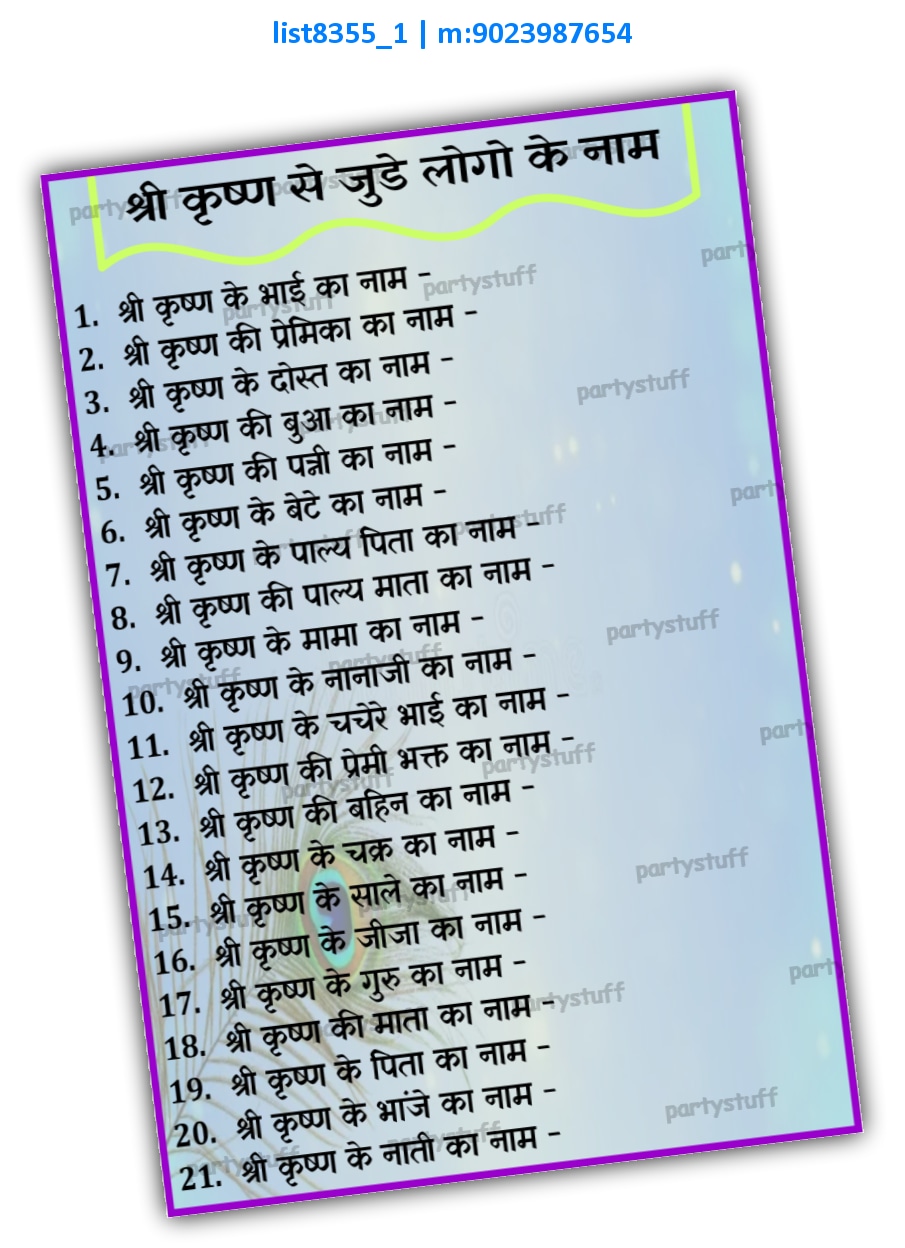 list8355_1 | m:9023987654
श्री कृष्ण से जुडे लोगो के नाम
1. श्री कृष्ण के भाई का नाम -
2. श्री कृष्ण की प्रेमिका का नाम -
3. श्री कृष्ण के दोस्त का नाम -
4. श्री कृष्ण की बुआ का नाम -
5. श्री कृष्ण की पत्नी का नाम -
6. श्री कृष्ण के बेटे का नाम -
7. श्री कृष्ण के पाल्य पिता का नाम -
8. श्री कृष्ण की पाल्य माता का नाम -
9. श्री कृष्ण के मामा का नाम -
10. श्री कृष्ण के नानाजी का नाम -
11. श्री कृष्ण के चचेरे भाई का नाम -
12. श्री कृष्ण की प्रेमी भक्त का नाम -
13. श्री कृष्ण की बहिन का नाम -
14. श्री कृष्ण के चक्र का नाम -
15. श्री कृष्ण के साले का नाम -
16. श्री कृष्ण के जीजा का नाम -
17. श्री कृष्ण के गुरु का नाम -
18. श्री कृष्ण की माता का नाम -
19. श्री कृष्ण के पिता का नाम -
20. श्री कृष्ण के भांजे का नाम -
21. श्री कृष्ण के नाती का नाम -
partystuff